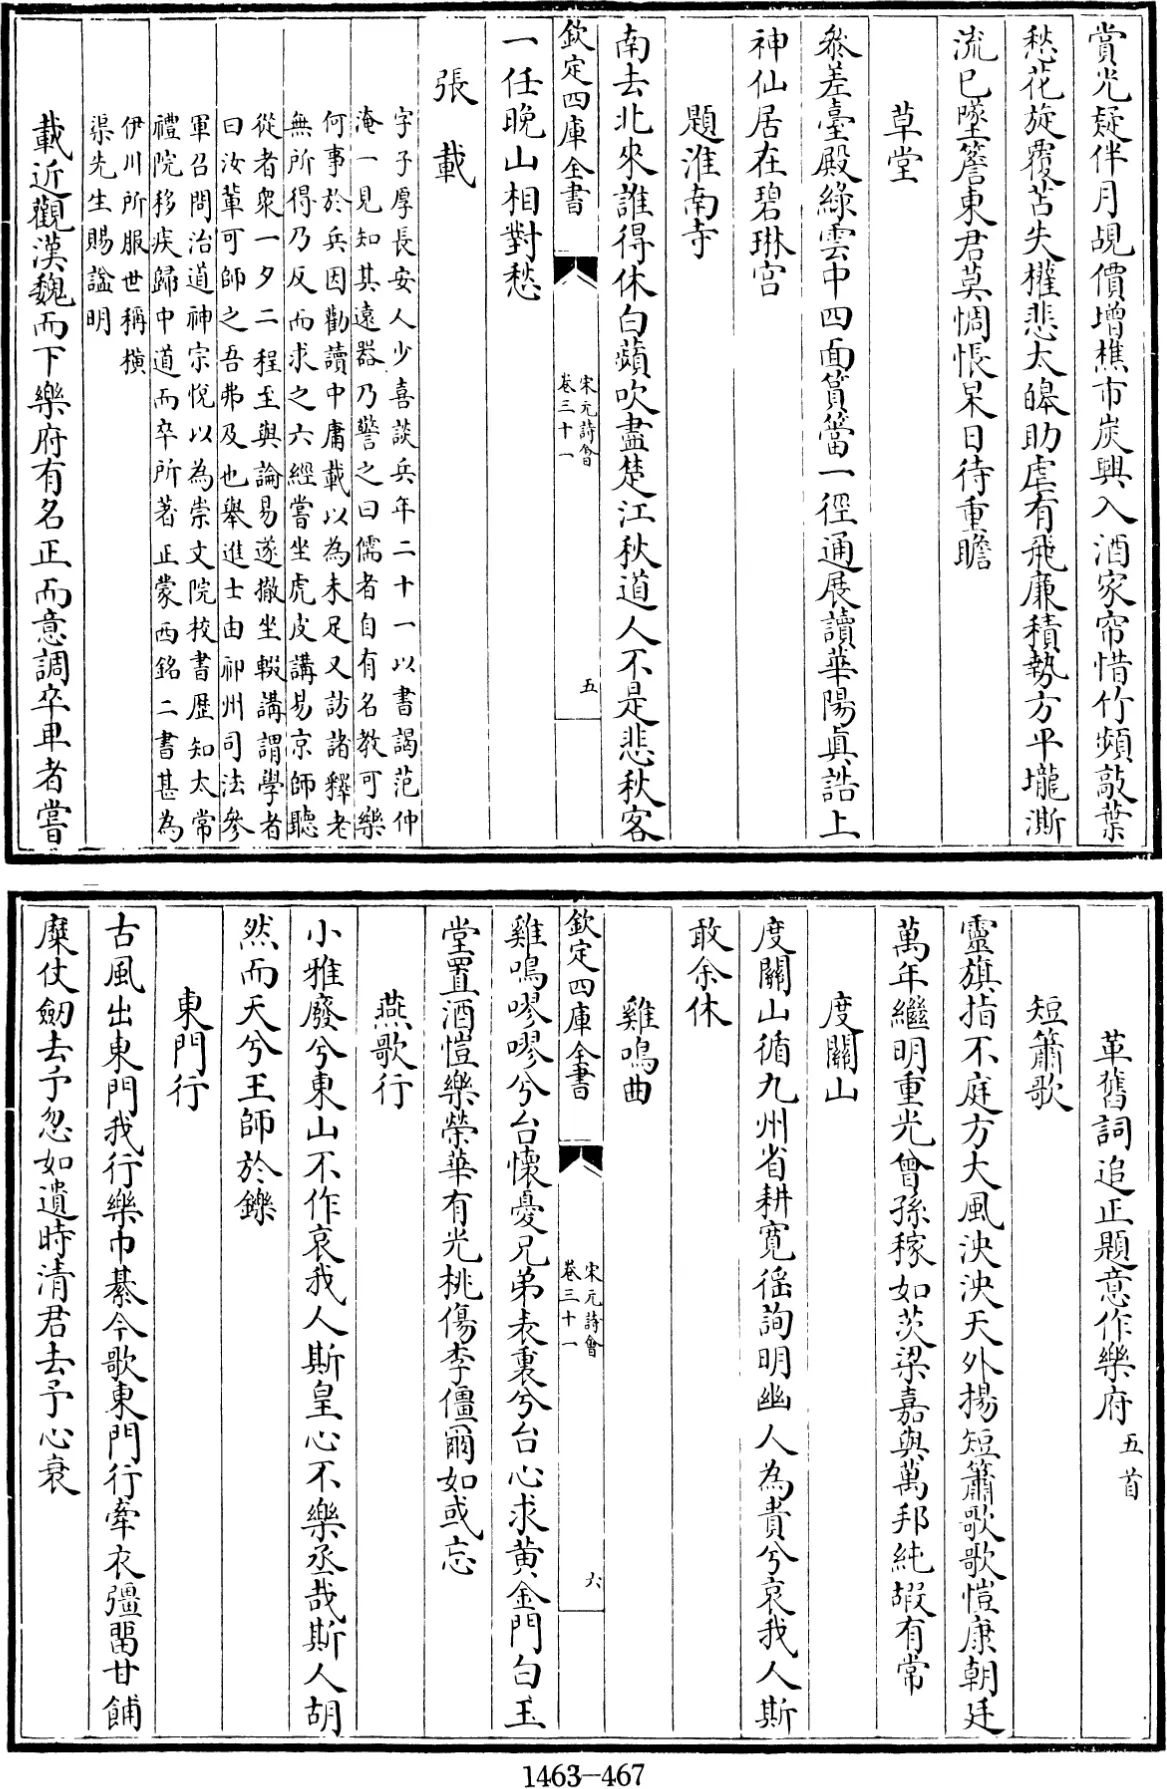 賞光疑伴月覘價增樵市炭興入酒家帘惜竹頻敲葉
愁花旋覆苫失權悲太皞助虐有飛廉積勢方平壠澌
流已墜簷東君莫惆悵杲日待重瞻
草堂
參差臺殿綠雲中四面篔簹一徑通展讀華陽真誥上
神仙居在碧琳宮
題淮南寺
南去北來誰得休白蘋吹盡楚江秋道人不是悲秋客
欽定四庫全書
宋元詩會
卷三十一
五
一任晚山相對愁
張載
字子厚長安人少喜談兵年二十一以書謁范仲
淹一見知其遠器乃警之曰儒者自有名教可樂
何事於兵因勸讀中庸載以為未足又訪諸釋老
無所得乃反而求之六經嘗坐虎皮講易京師聽
從者衆一夕二程至與論易遂撤坐輟講謂學者
曰汝輩可師之吾弗及也舉進士由祁州司法參
軍召問治道神宗悅以為崇文院校書歷知太常
禮院移疾歸中道而卒所著正蒙西銘二書甚為
伊川所服世稱橫
渠先生賜諡明
載近觀漢魏而下樂府有名正而意調卒卑者嘗
革舊詞追正題意作樂府五首
短簫歌
靈旗指不庭方大風泱泱天外揚短簫歌歌愷康朝廷
萬年繼明重光曾孫稼如茨梁嘉與萬邦純嘏有常
度關山
度關山循九州省耕寬徭詢明幽人為貴兮哀我人斯
敢余休
雞鳴曲
欽定四庫全書
宋元詩會
卷三十一
六
雞鳴嘐嘐兮台懷憂兄弟表裏兮台心求黃金門白玉
堂置酒愷樂榮華有光桃傷李僵爾如或忘
燕歌行
小雅廢兮東山不作哀我人斯皇心不樂丞哉斯人胡
然而天兮王師於鑠
東門行
古風出東門我行樂巾綦今歌東門行牽衣彊畱甘餔
糜仗劒去予忽如遺時清君去予心衰
1463—467